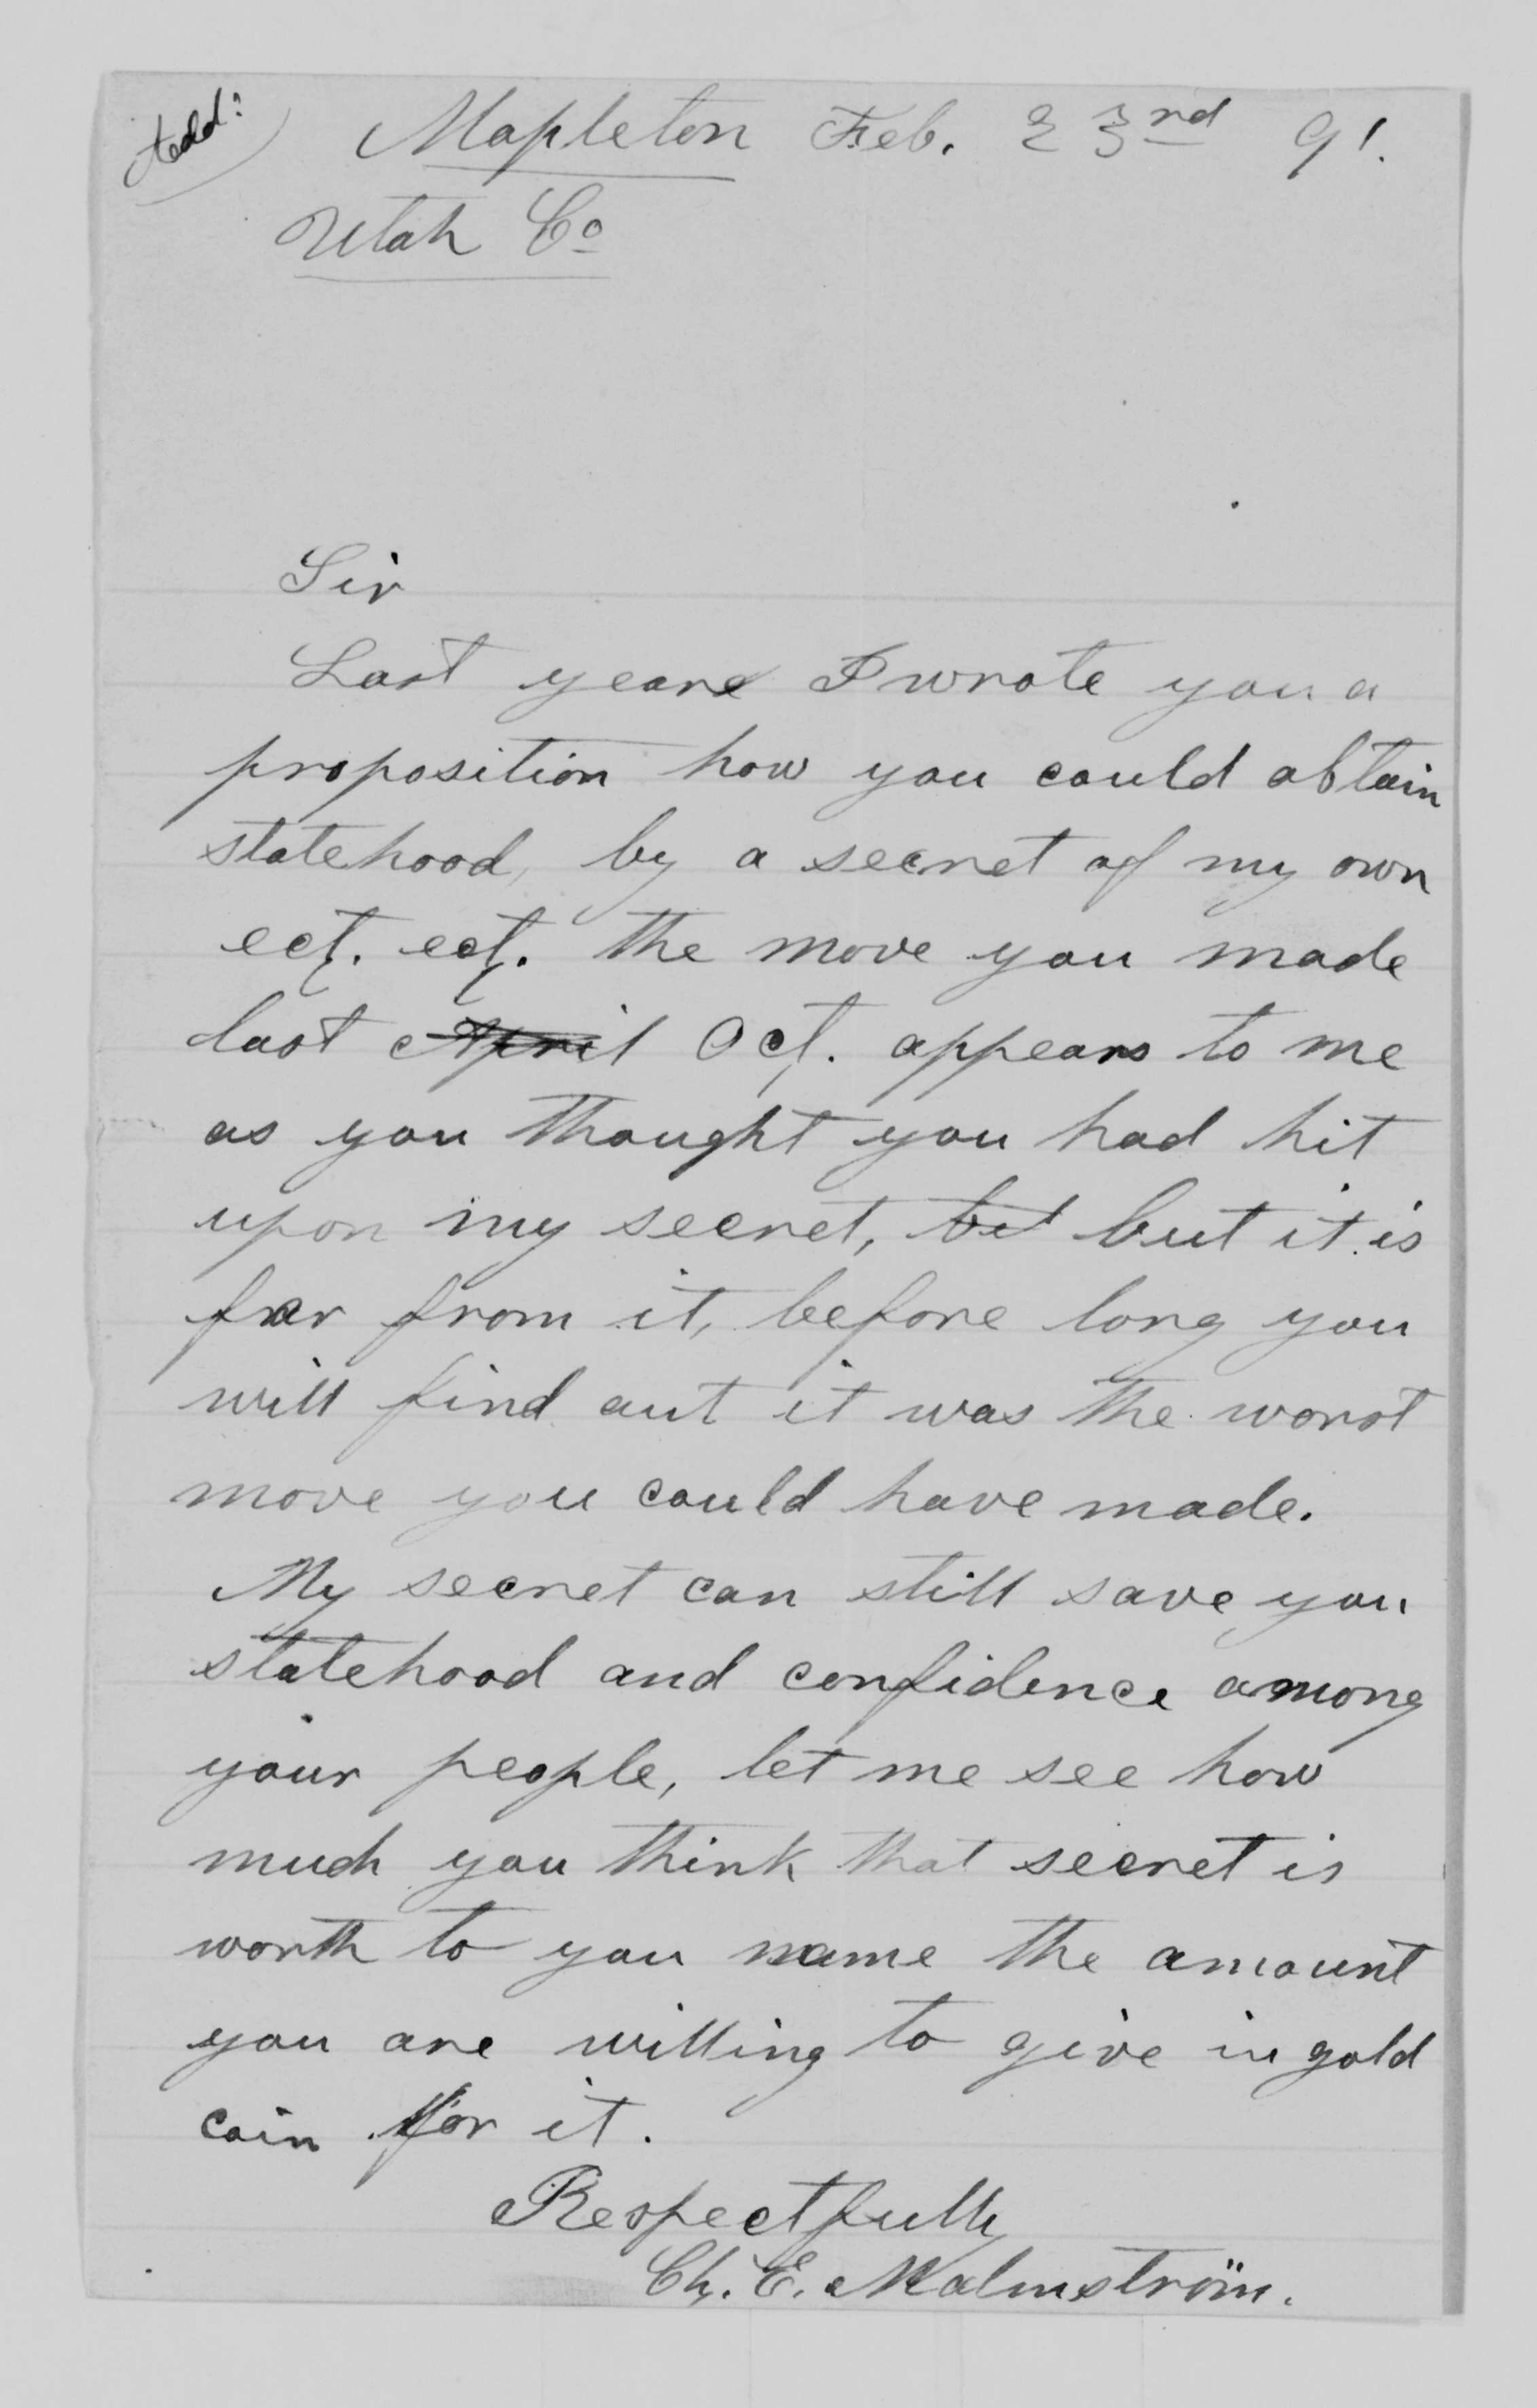 Mapleton Feb. 23rd 91.
Utah Co
Sir
Last yeare I wrote you a
proposition how you could obtain
statehood, by a secret of my own
ect. ect. the move you made
last April Oct. appears to me
as you thought you had hit
upon my secret, but but it is
far from it, before long you
will find out it was the worst
move you could have made.
My secret can still save you
statehood and confidence among
your people, let me see how
much you think that secret is
worth to you name the amount
you are willing to give in gold
coin for it.
Respectfully
Ch. E. Malmström.